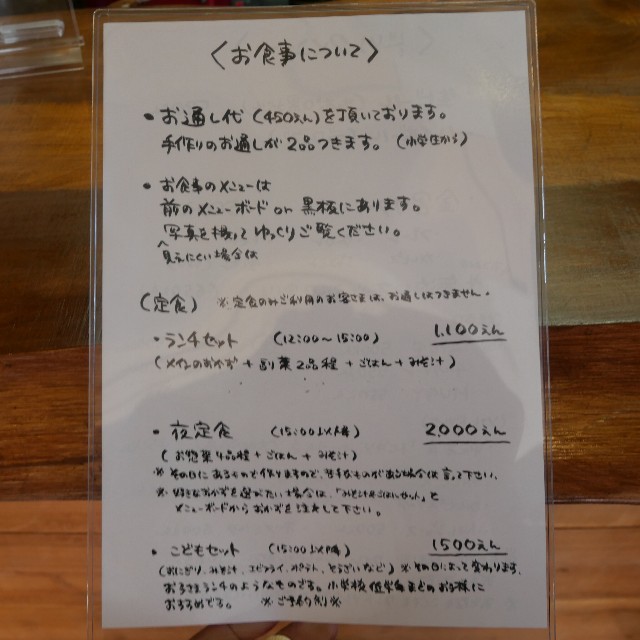 〈お食事について〉
・お通し代(450えん)を頂いております。
手作りのお通しが2品つきます。(小学生から)
・お食事のメニューは
前のメニューボード or 黒板にあります。
写真を撮ってゆっくりご覧ください。
見えにくい場合は
(定食) ※定食のみご利用のお客さまは、お通しはつきません。
・ランチセット (12:00〜15:00) 1,100えん
(メインのおかず + 副菜2品程 + ごはん + みそ汁)
・夜定食 (15:00以降) 2,000えん
(お惣菜4品程 + ごはん + みそ汁)
※その日にあるもので作りますので、苦手なものがある場合は言って下さい。
※好きなおかずを選びたい場合は、「みそ汁ごはんセット」と
メニューボードからおかずを注文して下さい。
・こどもセット (15:00以降) 1500えん
(おにぎり、みそ汁、エビフライ、ポテト、とうふなど) ※その日によって変わります。
おこさまランチのようなものです。小学校低学年までのお子様に
おすすめです。 ※ご予約制※